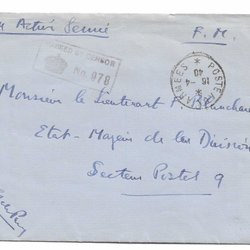 on Active Service
F. M.
PASSED BY CENSOR
No. 978
POSTE AUX ARMEES
16 -4
40
Monsieur le Lieutenant
Etat-Major de la Division
Secteur Postal 9